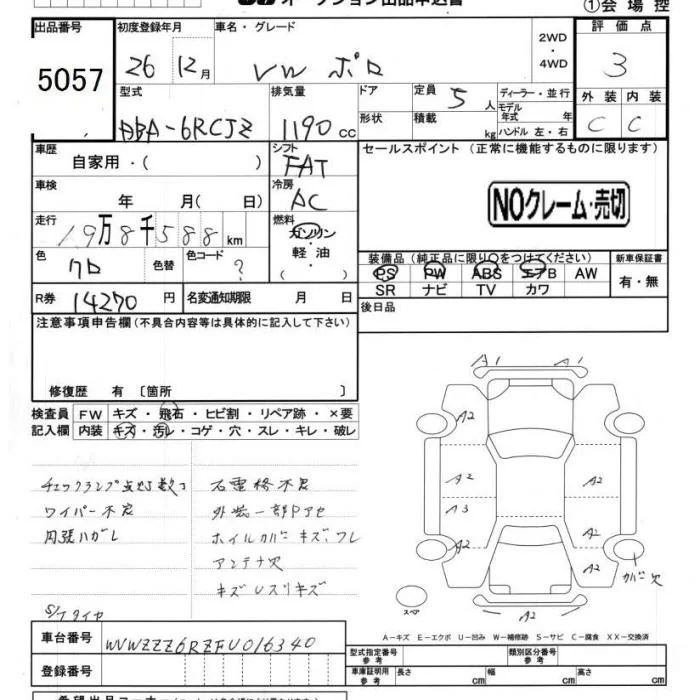 オークション出品申込書
①会場控
出品番号 初度登録年月 車名・グレード 2WD・4WD 評価点
5057 26 12月 VW ポロ 3
型式 排気量 ドア 定員 5人 ディーラー・並行 外装 内装
ABA-6RCJZ 1190cc 形状 積載 kg モデル年式 年 ハンドル 左・右 C C
車歴 シフト セールスポイント(正常に機能するものに限ります)
自家用・( ) FAT
車検 冷房
年 月( 日) AC NOクレーム・売切
走行 燃料
19万8千588km ガソリン・軽油・( )
装備品(純正品に限り○をつけてください) 新車保証書
色 クロ 色替 色コード ? PS PW ABS エアB AW 有・無
SR ナビ TV カワ
R券 14270円 名変通知期限 月 日 後日品
注意事項申告欄(不具合内容等は具体的に記入して下さい)
修復歴 有〔箇所 〕
検査員 FW キズ・飛石・ヒビ割・リペア跡・×要
記入欄 内装 キズ・汚レ・コゲ・穴・スレ・キレ・破レ
A1 A1
A2
A2 A2
A3
A2 A2
A2
A2
カバー欠
スペア
チェックランプ点灯数コ
ワイパー不良
内張ハガレ
外装一部Pアセ
ホイルカバーキズ、ワレ
アンテナ欠
キズUスリキズ
S/Tタイヤ
A-キズ E-エクボ U-凹み W-補修跡 S-サビ C-腐食 XX-交換済
車台番号 WVWZZZ6RZFU016340
型式指定番号 参考 類別区分番号 参考
登録番号 車庫証明用 参考 長さ cm 幅 cm 高さ cm